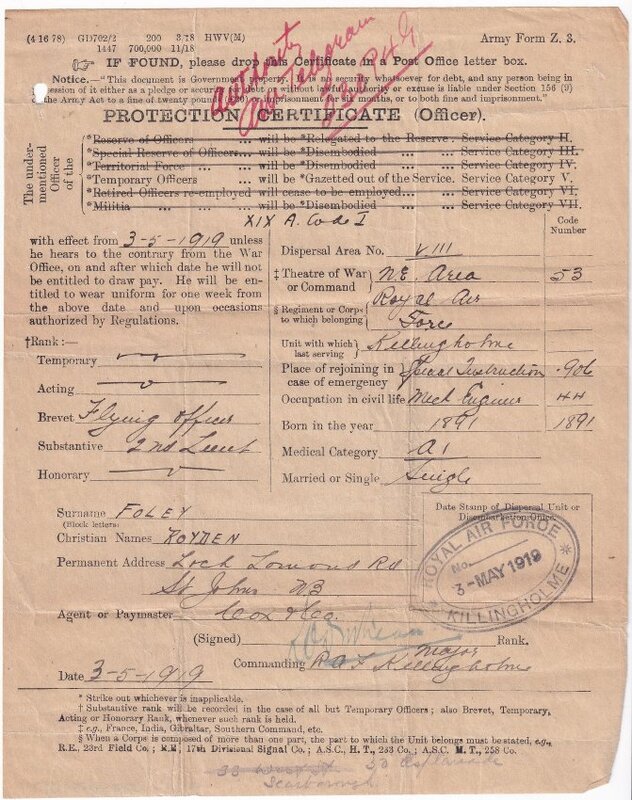 (4 16 78) GD702/2 200 3/18 HWV(M)
1447 700,000 11/18
Army Form Z. 3.
Authority
Air Telegram
☞ IF FOUND, please drop this Certificate in a Post Office letter box.
Notice.—"This document is Government Property. It is no security whatsoever for debt, and any person being in pos-
session of it either as a pledge or security for debt or without lawful authority or excuse is liable under Section 156 (9) of
the Army Act to a fine of twenty pounds (£20) or imprisonment for six months, or to both fine and imprisonment."
PROTECTION CERTIFICATE (Officer).
The under-mentioned Officer of the
*Reserve of Officers ... ... will be *Relegated to the Reserve. Service Category II.
*Special Reserve of Officers... ... will be *Disembodied ... Service Category III.
*Territorial Force ... ... will be *Disembodied ... Service Category IV.
*Temporary Officers ... will be *Gazetted out of the Service. Service Category V.
*Retired Officers re-employed will cease to be employed... ... Service Category VI.
*Militia ... ... will be *Disembodied ... Service Category VII.
XIX A. Code I
Code Number
with effect from 3-5-1919 unless
he hears to the contrary from the War
Office, on and after which date he will not
be entitled to draw pay. He will be en-
titled to wear uniform for one week from
the above date and upon occasions
authorized by Regulations.
†Rank:—
Temporary
Acting
Brevet Flying Officer
Substantive 2nd Lieut
Honorary
Dispersal Area No. VIII
‡ Theatre of War or Command N.E. Area 53
§ Regiment or Corps to which belonging Royal Air Force
Unit with which last serving Killingholme
Place of rejoining in case of emergency Special Instruction .906
Occupation in civil life Mech Engineer 44
Born in the year 1891 1891
Medical Category A1
Married or Single Single
Surname FOLEY
(Block letters)
Christian Names ROYDEN
Permanent Address Loch Lomond Rd
St Johns NB
Agent or Paymaster Cox & Co.
Date Stamp of Dispersal Unit or
Disembarkation Office.
ROYAL AIR FORCE
No.
3-MAY 1919
* KILLINGHOLME *
(Signed) Rank.
Major
Commanding RAF Killingholme
Date 3-5-1919
* Strike out whichever is inapplicable.
† Substantive rank will be recorded in the case of all but Temporary Officers; also Brevet, Temporary,
Acting or Honorary Rank, whenever such rank is held.
‡ e.g., France, India, Gibraltar, Southern Command, etc.
§ When a Corps is composed of more than one part, the part to which the Unit belongs must be stated, e.g.,
R.E., 23rd Field Co.; R.E., 17th Divisional Signal Co.; A.S.C., H.T., 253 Co.; A.S.C. M.T., 258 Co.
33 West St 50 Esplanade
Scarborough